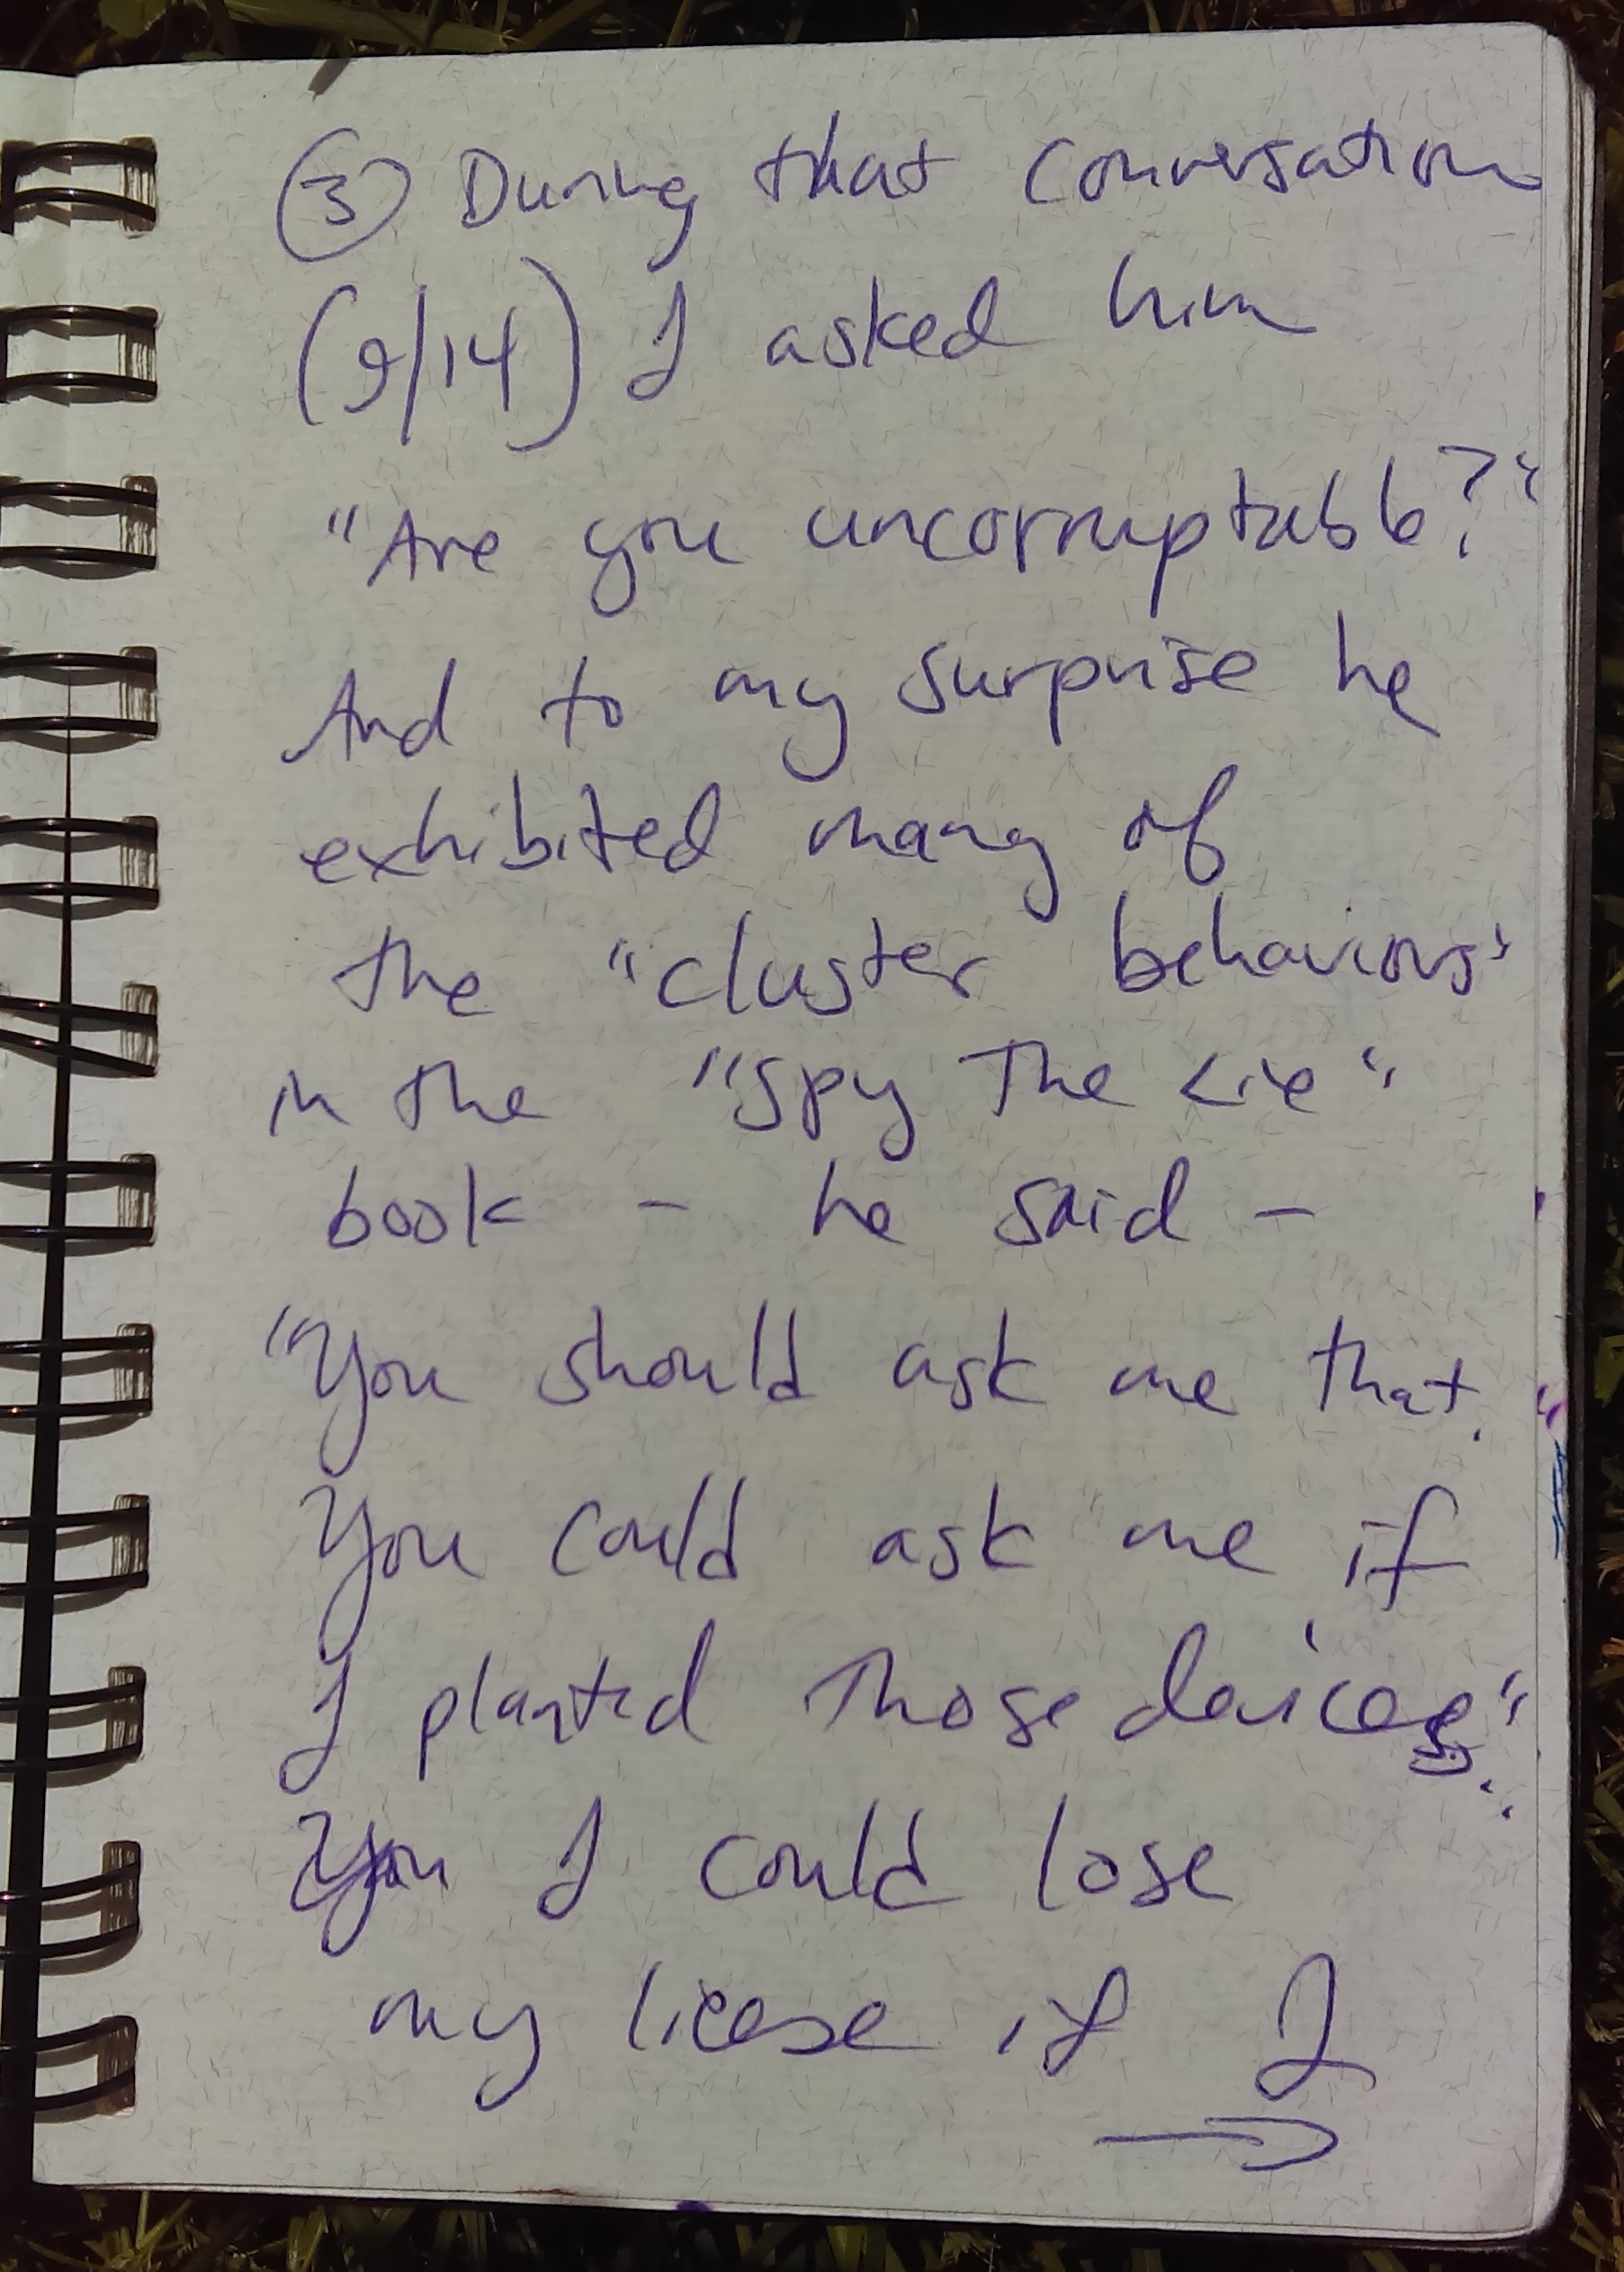 ③ During that conversation
(9/14) I asked him
"Are you uncorruptable?"
And to my surprise he
exhibited many of
the "cluster behaviors"
in the "Spy The Lie"
book - he said -
"You should ask me that.
You could ask me if
I planted those devices".
You I could lose
my licese if I
→